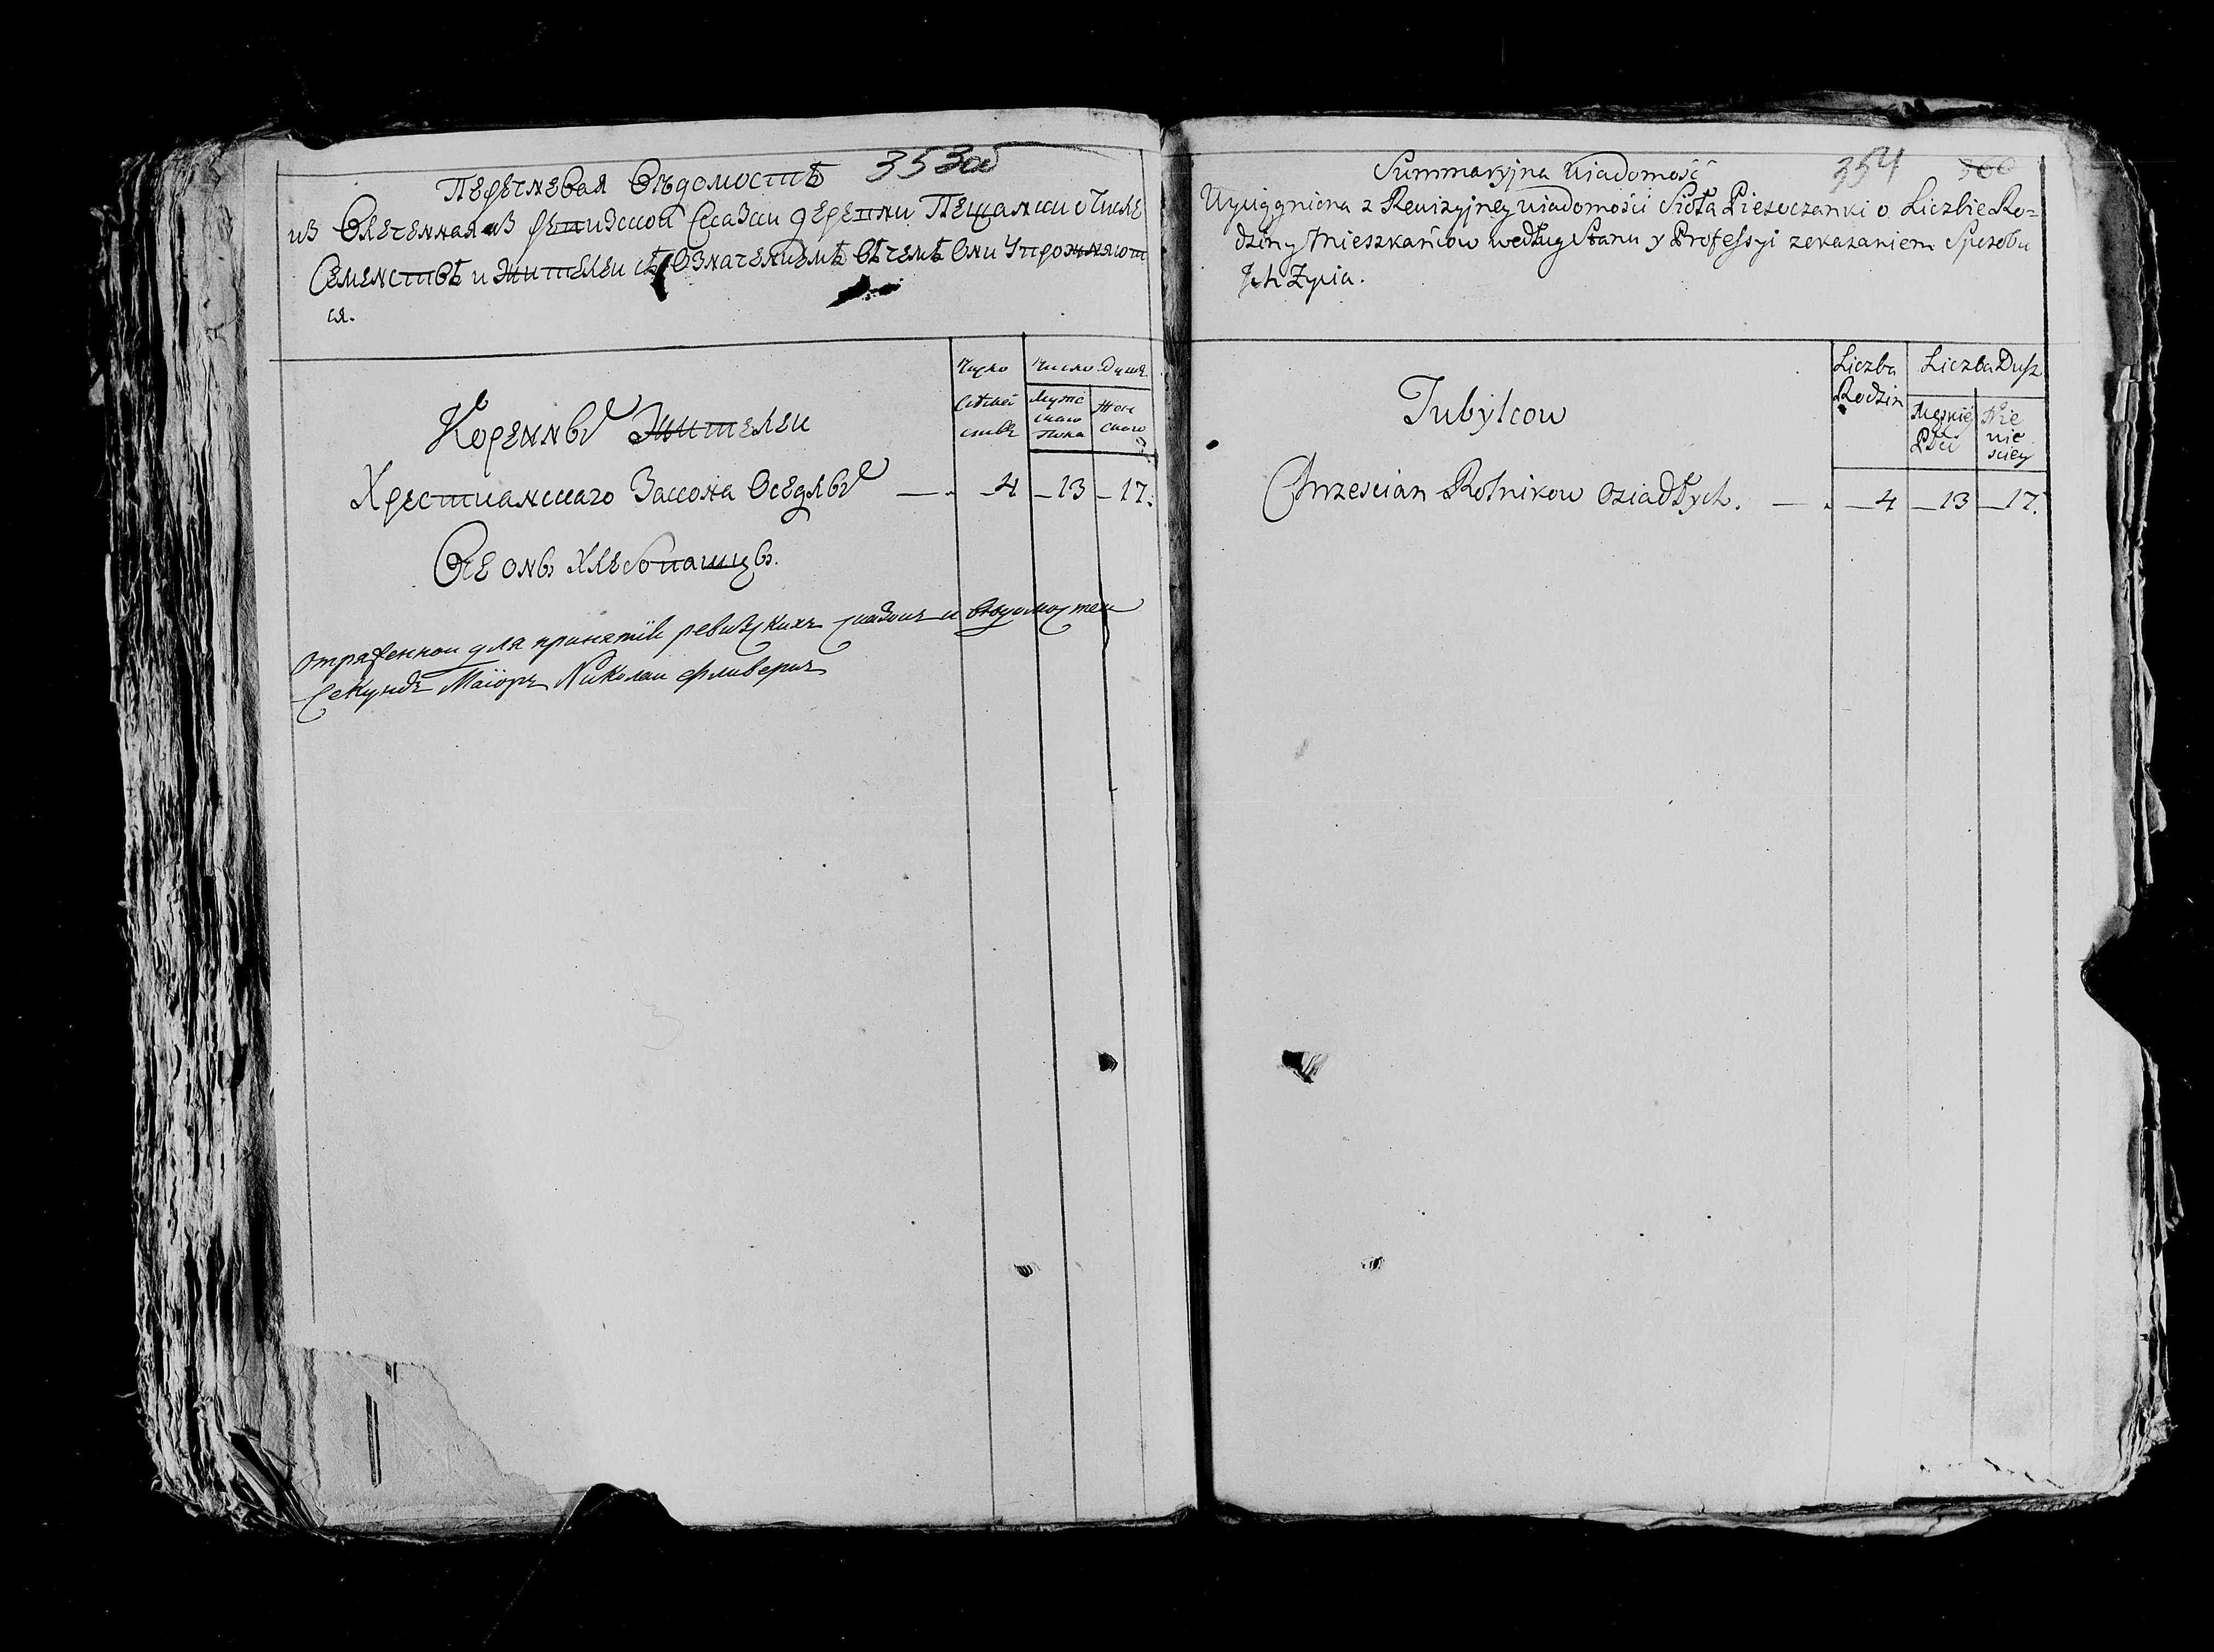 353об
Перечневая Вѣдомостъ
из Влеченная из ревизской Сказки деревни Пещанки о Числе
Семенствъ и Жителеи съ Означениемъ вчемъ Они Упрожняют
ся.
Число
Семеи
ствъ
Число Душъ
Мужс
каго
Пола
Жен
скаго
Коренны Жителеи
Хрестианскаго Закона Оседлы — 4 — 13 — 17.
Все оны хлебопашцы.
отряженнои для принятия ревизскихъ сказокъ и ведомостеи
Секундъ Маіоръ Николаи
354
Summaryjna Wiadomość
Wyciągniona z Rewizyjney wiadomości Sioła Piesoczanki o Liczbie Ro=
dziny Mieszkańcow według Stanu y Professyi zekazaniem Sposobu
Ich Życia.
Liczba
Rodzin
Liczba Dusz
Męskiéj
Płci
Nie
wie
sciey
Tubylcow
Chrzescian Rolnikow osiadłych. — 4 — 13 — 17.